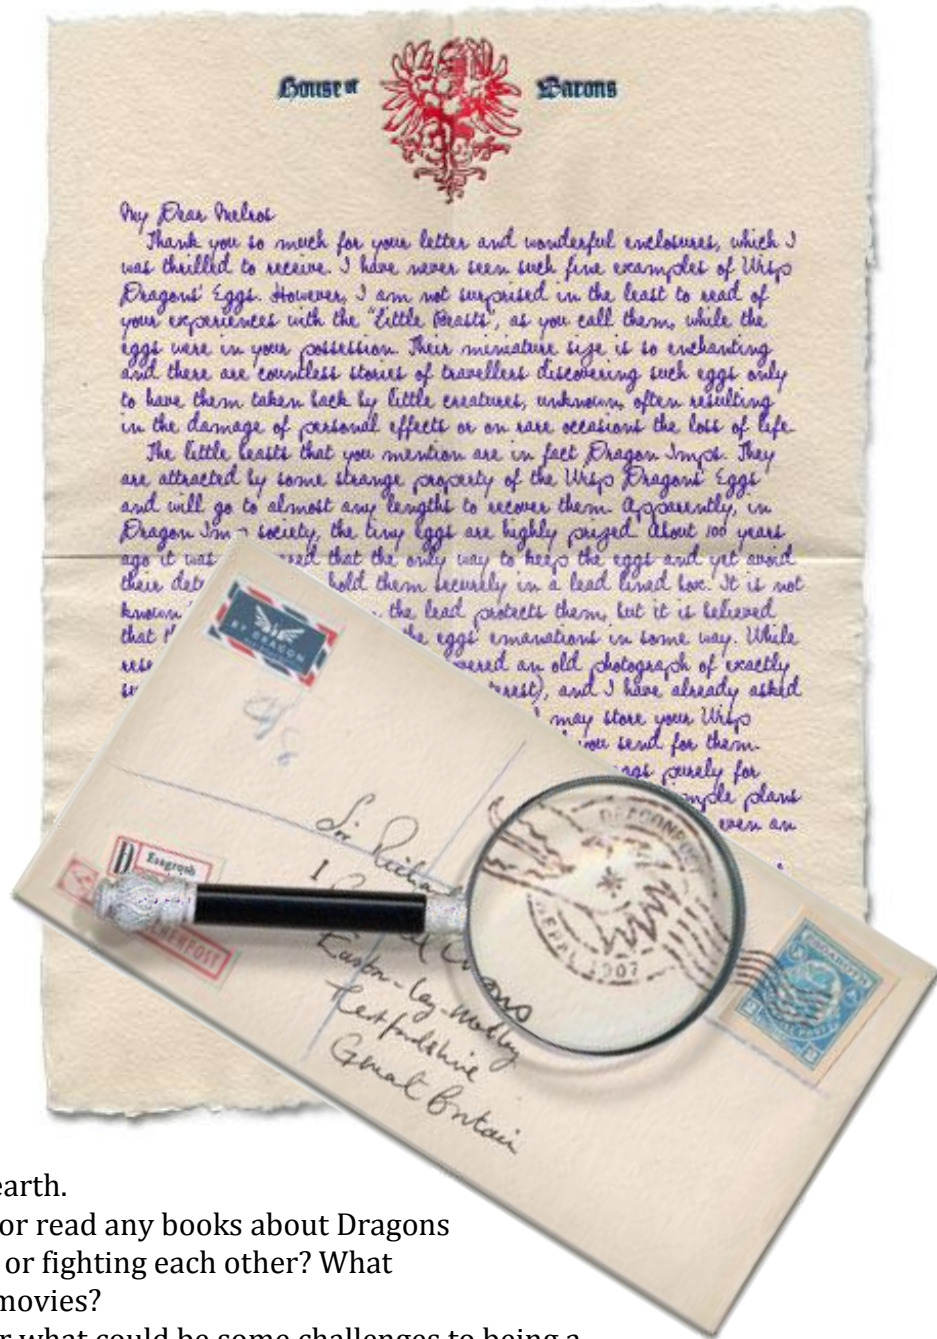 House of Barons
My Dear Melros
Thank you so much for your letter and wonderful enclosures, which I
was thrilled to receive. I have never seen such fine examples of Wisp
Dragons' Eggs. However, I am not surprised in the least to read of
your experiences with the "Little Beasts", as you call them, while the
eggs were in your possession. Their miniature size is so enchanting
and there are countless stories of travellers discovering such eggs only
to have them taken back by little creatures, unknown, often resulting
in the damage of personal effects or on rare occasions the loss of life.
The little beasts that you mention are in fact Dragon Imps. They
are attracted by some strange property of the Wisp Dragons' Eggs
and will go to almost any lengths to recover them. Apparently, in
Dragon society, the tiny eggs are highly prized. About 100 years
ago it was that the only way to keep the eggs and yet avoid
their hold them securely in a lead lined box. It is not
known the lead protects them, but it is believed
that eggs' emanations in some way. While
an old photograph of exactly
and I have already asked
I may store your Wisp
you send for them.
purely for
plans
even an
BY DRAGON
Sir
1
Easton-
Hertfordshire
Great Britain
DRAGONPOST
1907
earth.
or read any books about Dragons
or fighting each other? What
movies?
r what could be some challenges to being a